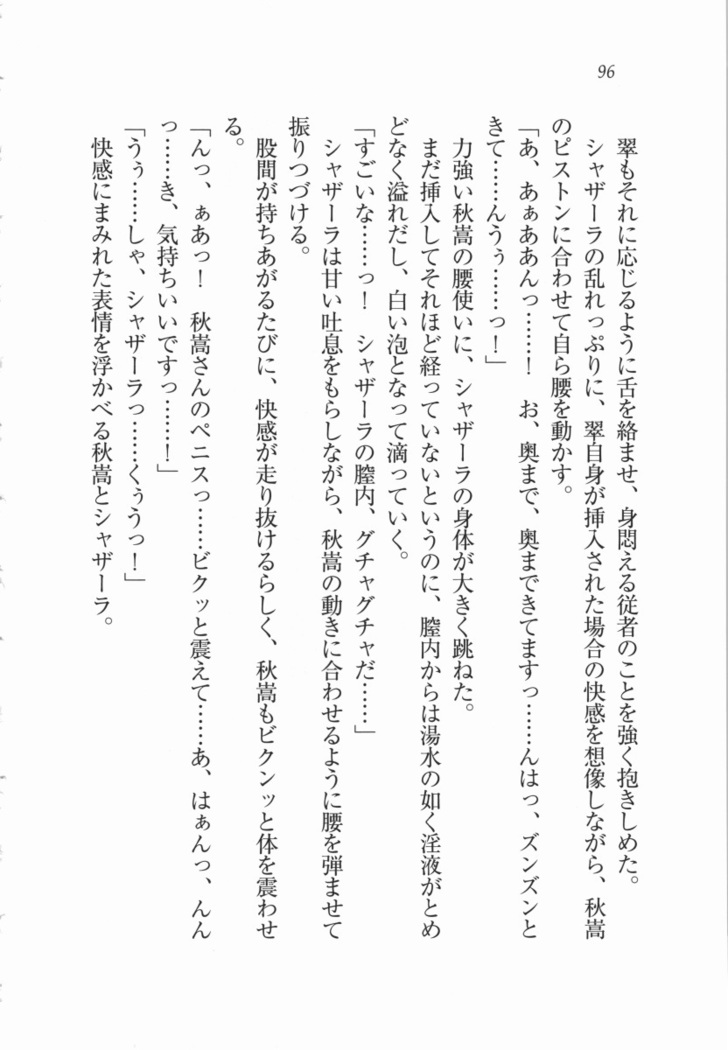 96
翠もそれに応じるように舌を絡ませ、身悶える従者のことを強く抱きしめた。
シャザーラの乱れっぷりに、翠自身が挿入された場合の快感を想像しながら、秋嵩
のピストンに合わせて自ら腰を動かす。
「あ、あぁああんっ……！　お、奥まで、奥まできてますっ……んはっ、ズンズンと
きて……んうぅ……っ！」
力強い秋嵩の腰使いに、シャザーラの身体が大きく跳ねた。
まだ挿入してそれほど経っていないというのに、膣内からは湯水の如く淫液がとめ
どなく溢れだし、白い泡となって滴っていく。
「すごいな……っ！　シャザーラの膣内、グチャグチャだ……」
シャザーラは甘い吐息をもらしながら、秋嵩の動きに合わせるように腰を弾ませて
振りつづける。
股間が持ちあがるたびに、快感が走り抜けるらしく、秋嵩もビクンッと体を震わせ
る。
「んっ、ぁあっ！　秋嵩さんのペニスっ……ビクッと震えて……あ、はぁんっ、んん
っ……き、気持ちいいですっ……！」
「うぅ……しゃ、シャザーラっ……くぅうっ！」
快感にまみれた表情を浮かべる秋嵩とシャザーラ。